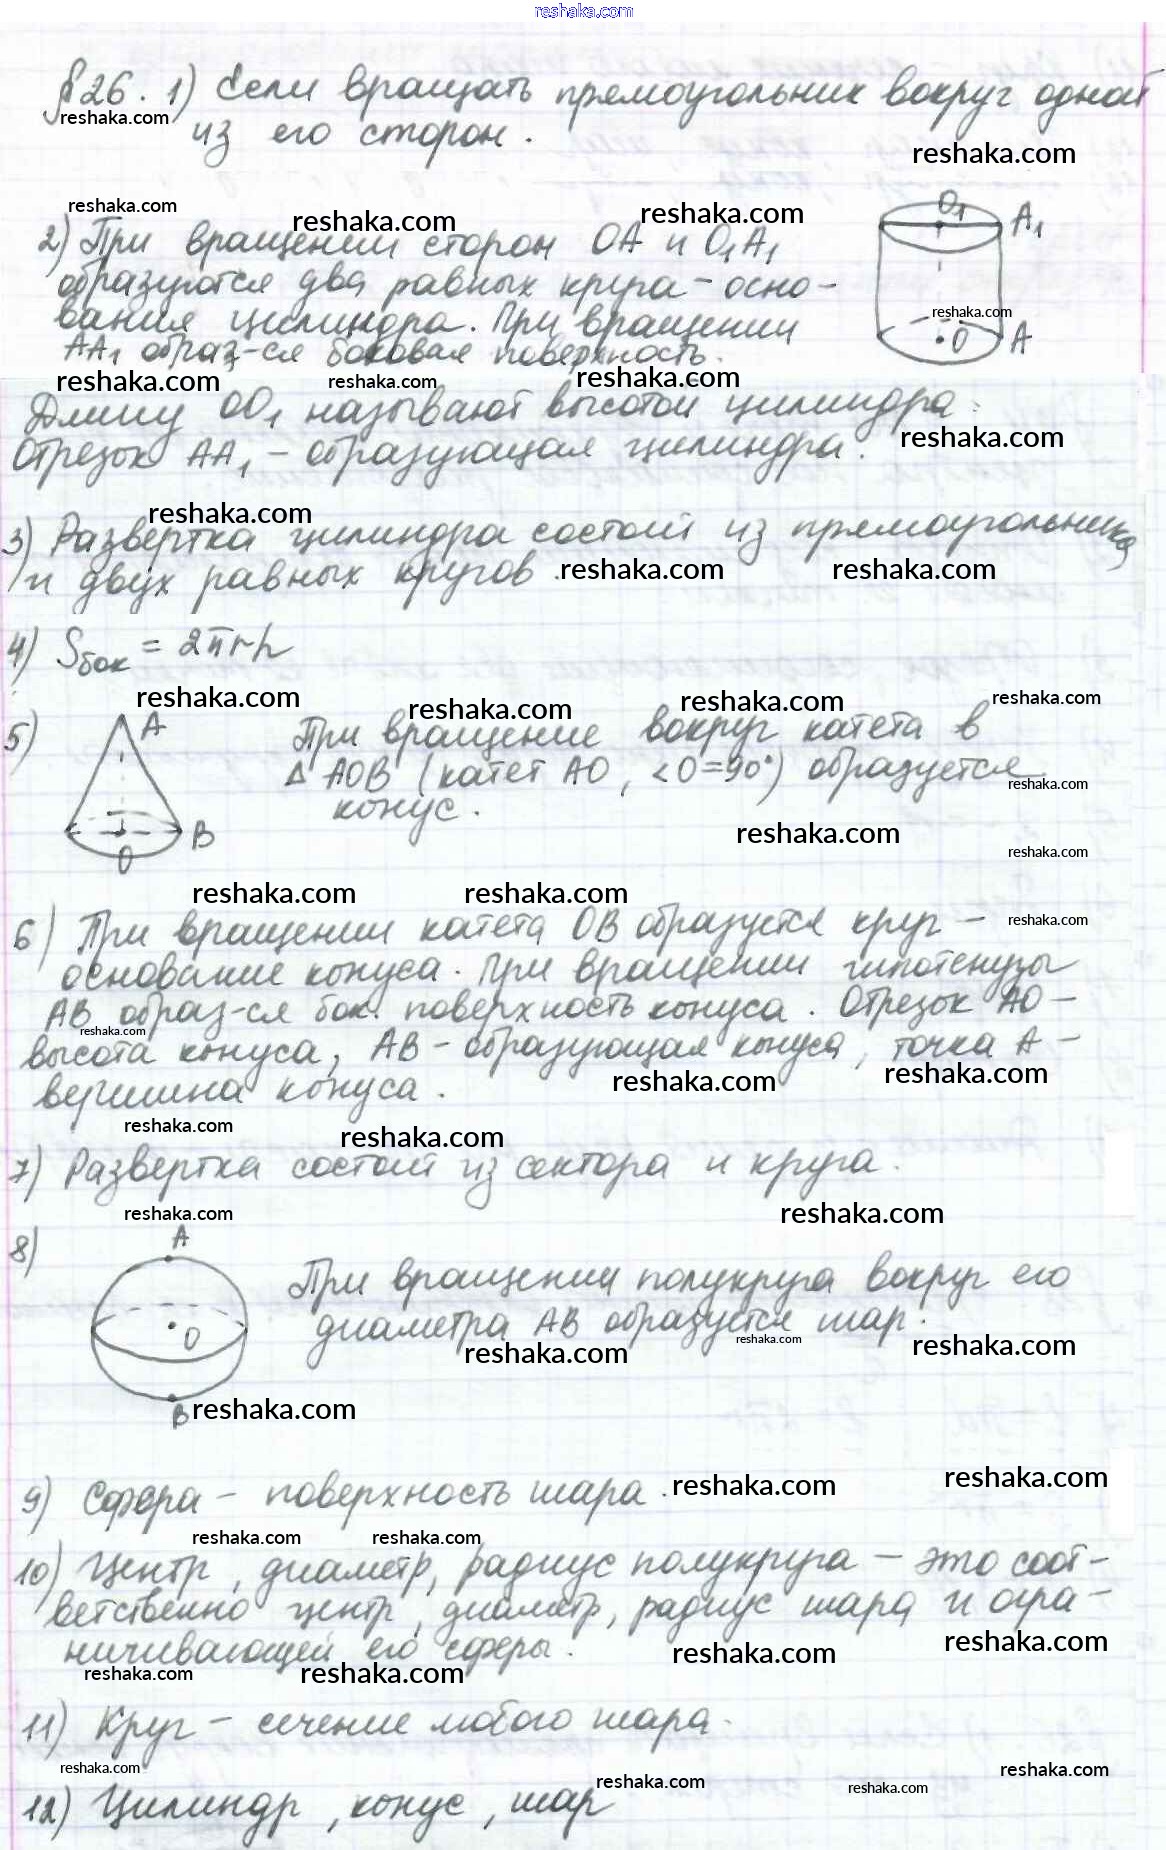 reshaka.com
§26. 1) Если вращать прямоугольник вокруг одной
reshaka.com
из его сторон.
reshaka.com
reshaka.com
reshaka.com
reshaka.com
O₁
A₁
2) При вращении сторон OA и O₁A₁
образуются два равных круга – осно-
reshaka.com
вания цилиндра. При вращении
O
A
AA₁ образ-ся боковая поверхность.
reshaka.com
reshaka.com
reshaka.com
Длину OO₁ называют высотой цилиндра.
reshaka.com
Отрезок AA₁ – образующая цилиндра.
reshaka.com
3) Развертка цилиндра состоит из прямоугольника
и двух равных кругов.
reshaka.com
reshaka.com
4) Sбок = 2πrh
reshaka.com
reshaka.com
reshaka.com
reshaka.com
5)
A
O
B
При вращение вокруг катета в
Δ AOB (катет AO, <O=90°) образуется
reshaka.com
конус.
reshaka.com
reshaka.com
reshaka.com
reshaka.com
reshaka.com
6) При вращении катета OB образуется круг –
основание конуса. При вращении гипотенузы
AB образ-ся бок. поверхность конуса. Отрезок AO –
reshaka.com
высота конуса, AB – образующая конуса, точка A –
reshaka.com
reshaka.com
вершина конуса.
reshaka.com
reshaka.com
7) Развертка состоит из сектора и круга.
reshaka.com
reshaka.com
8)
A
O
B
При вращении полукруга вокруг его
диаметра AB образуется шар.
reshaka.com
reshaka.com
reshaka.com
reshaka.com
9) Сфера – поверхность шара.
reshaka.com
reshaka.com
reshaka.com
reshaka.com
10) Центр, диаметр, радиус полукруга – это соот-
ветственно центр, диаметр, радиус шара и огра-
ничивающей его сферы.
reshaka.com
reshaka.com
reshaka.com
reshaka.com
11) Круг – сечение любого шара.
reshaka.com
reshaka.com
reshaka.com
reshaka.com
12) Цилиндр, конус, шар